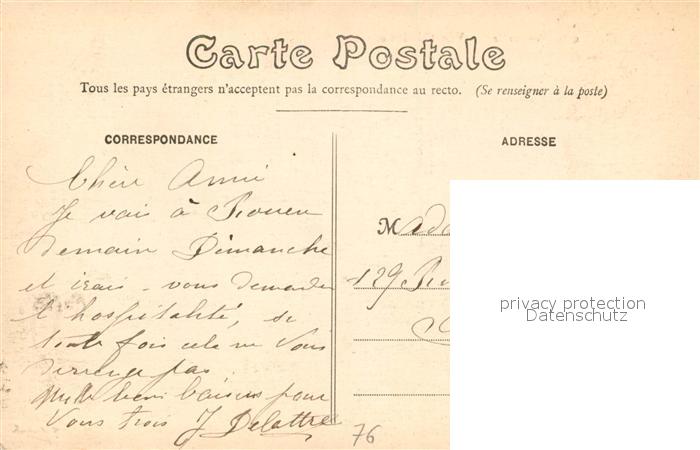 Carte Postale
Tous les pays étrangers n'acceptent pas la correspondance au recto. (Se renseigner à la poste)
CORRESPONDANCE
ADRESSE
Chère Amie
Je vais à Rouen
demain Dimanche
et irais vous demander
l'hospitalité, si
toute fois cela ne vous
derrenge pas
Mille bons baisers pour
Vous trois J Delattre
Mada
129 Ru
privacy protection
Datenschutz
76